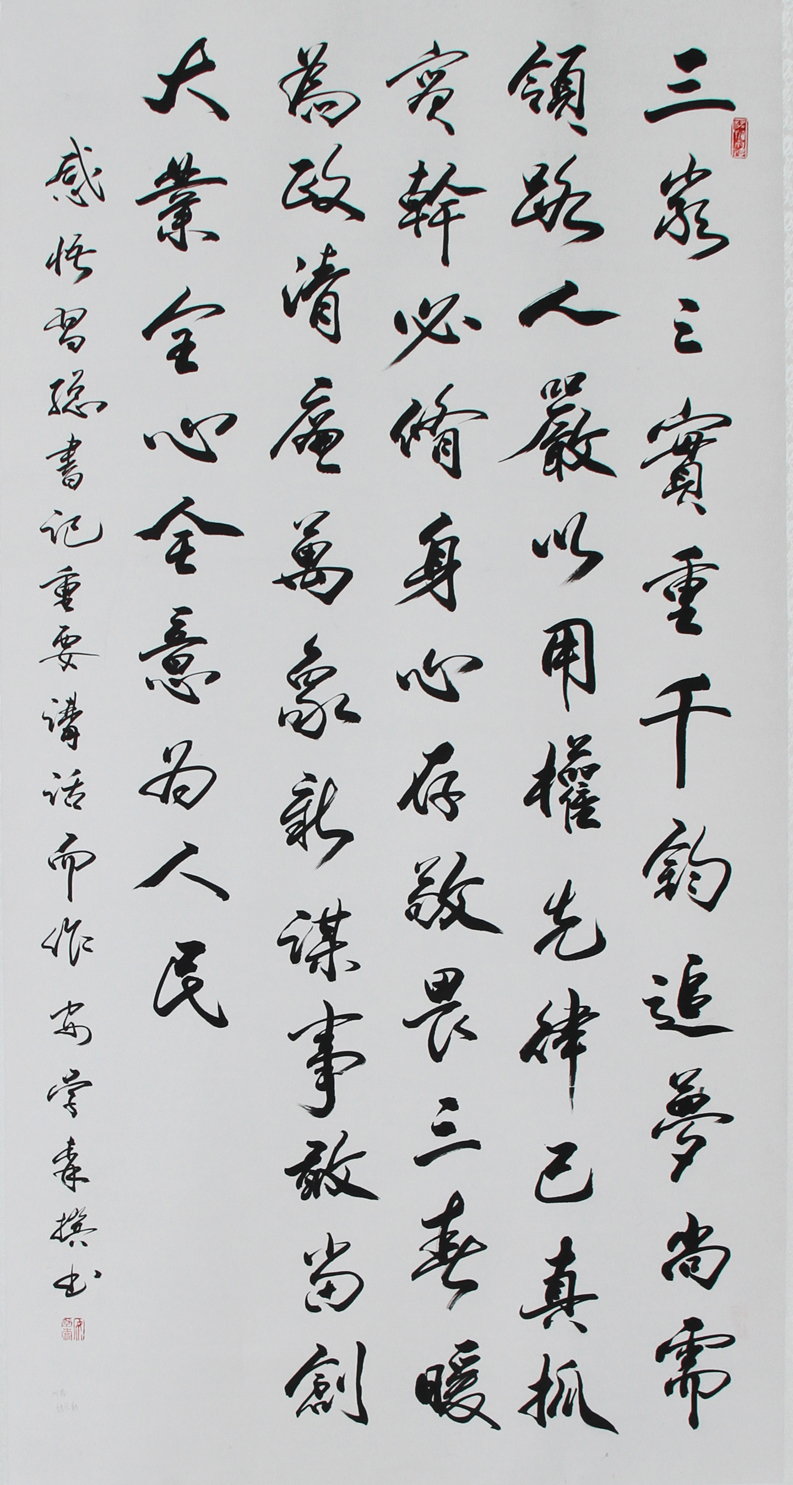 三嚴三實重千鈞追夢尚需
領路人嚴以用權先律己真抓
實幹必脩身心存敬畏三春暖
為政清廉萬象新謀事敢當創
大業全心全意为人民
感悟習總書記重要講話而作 学森撰书